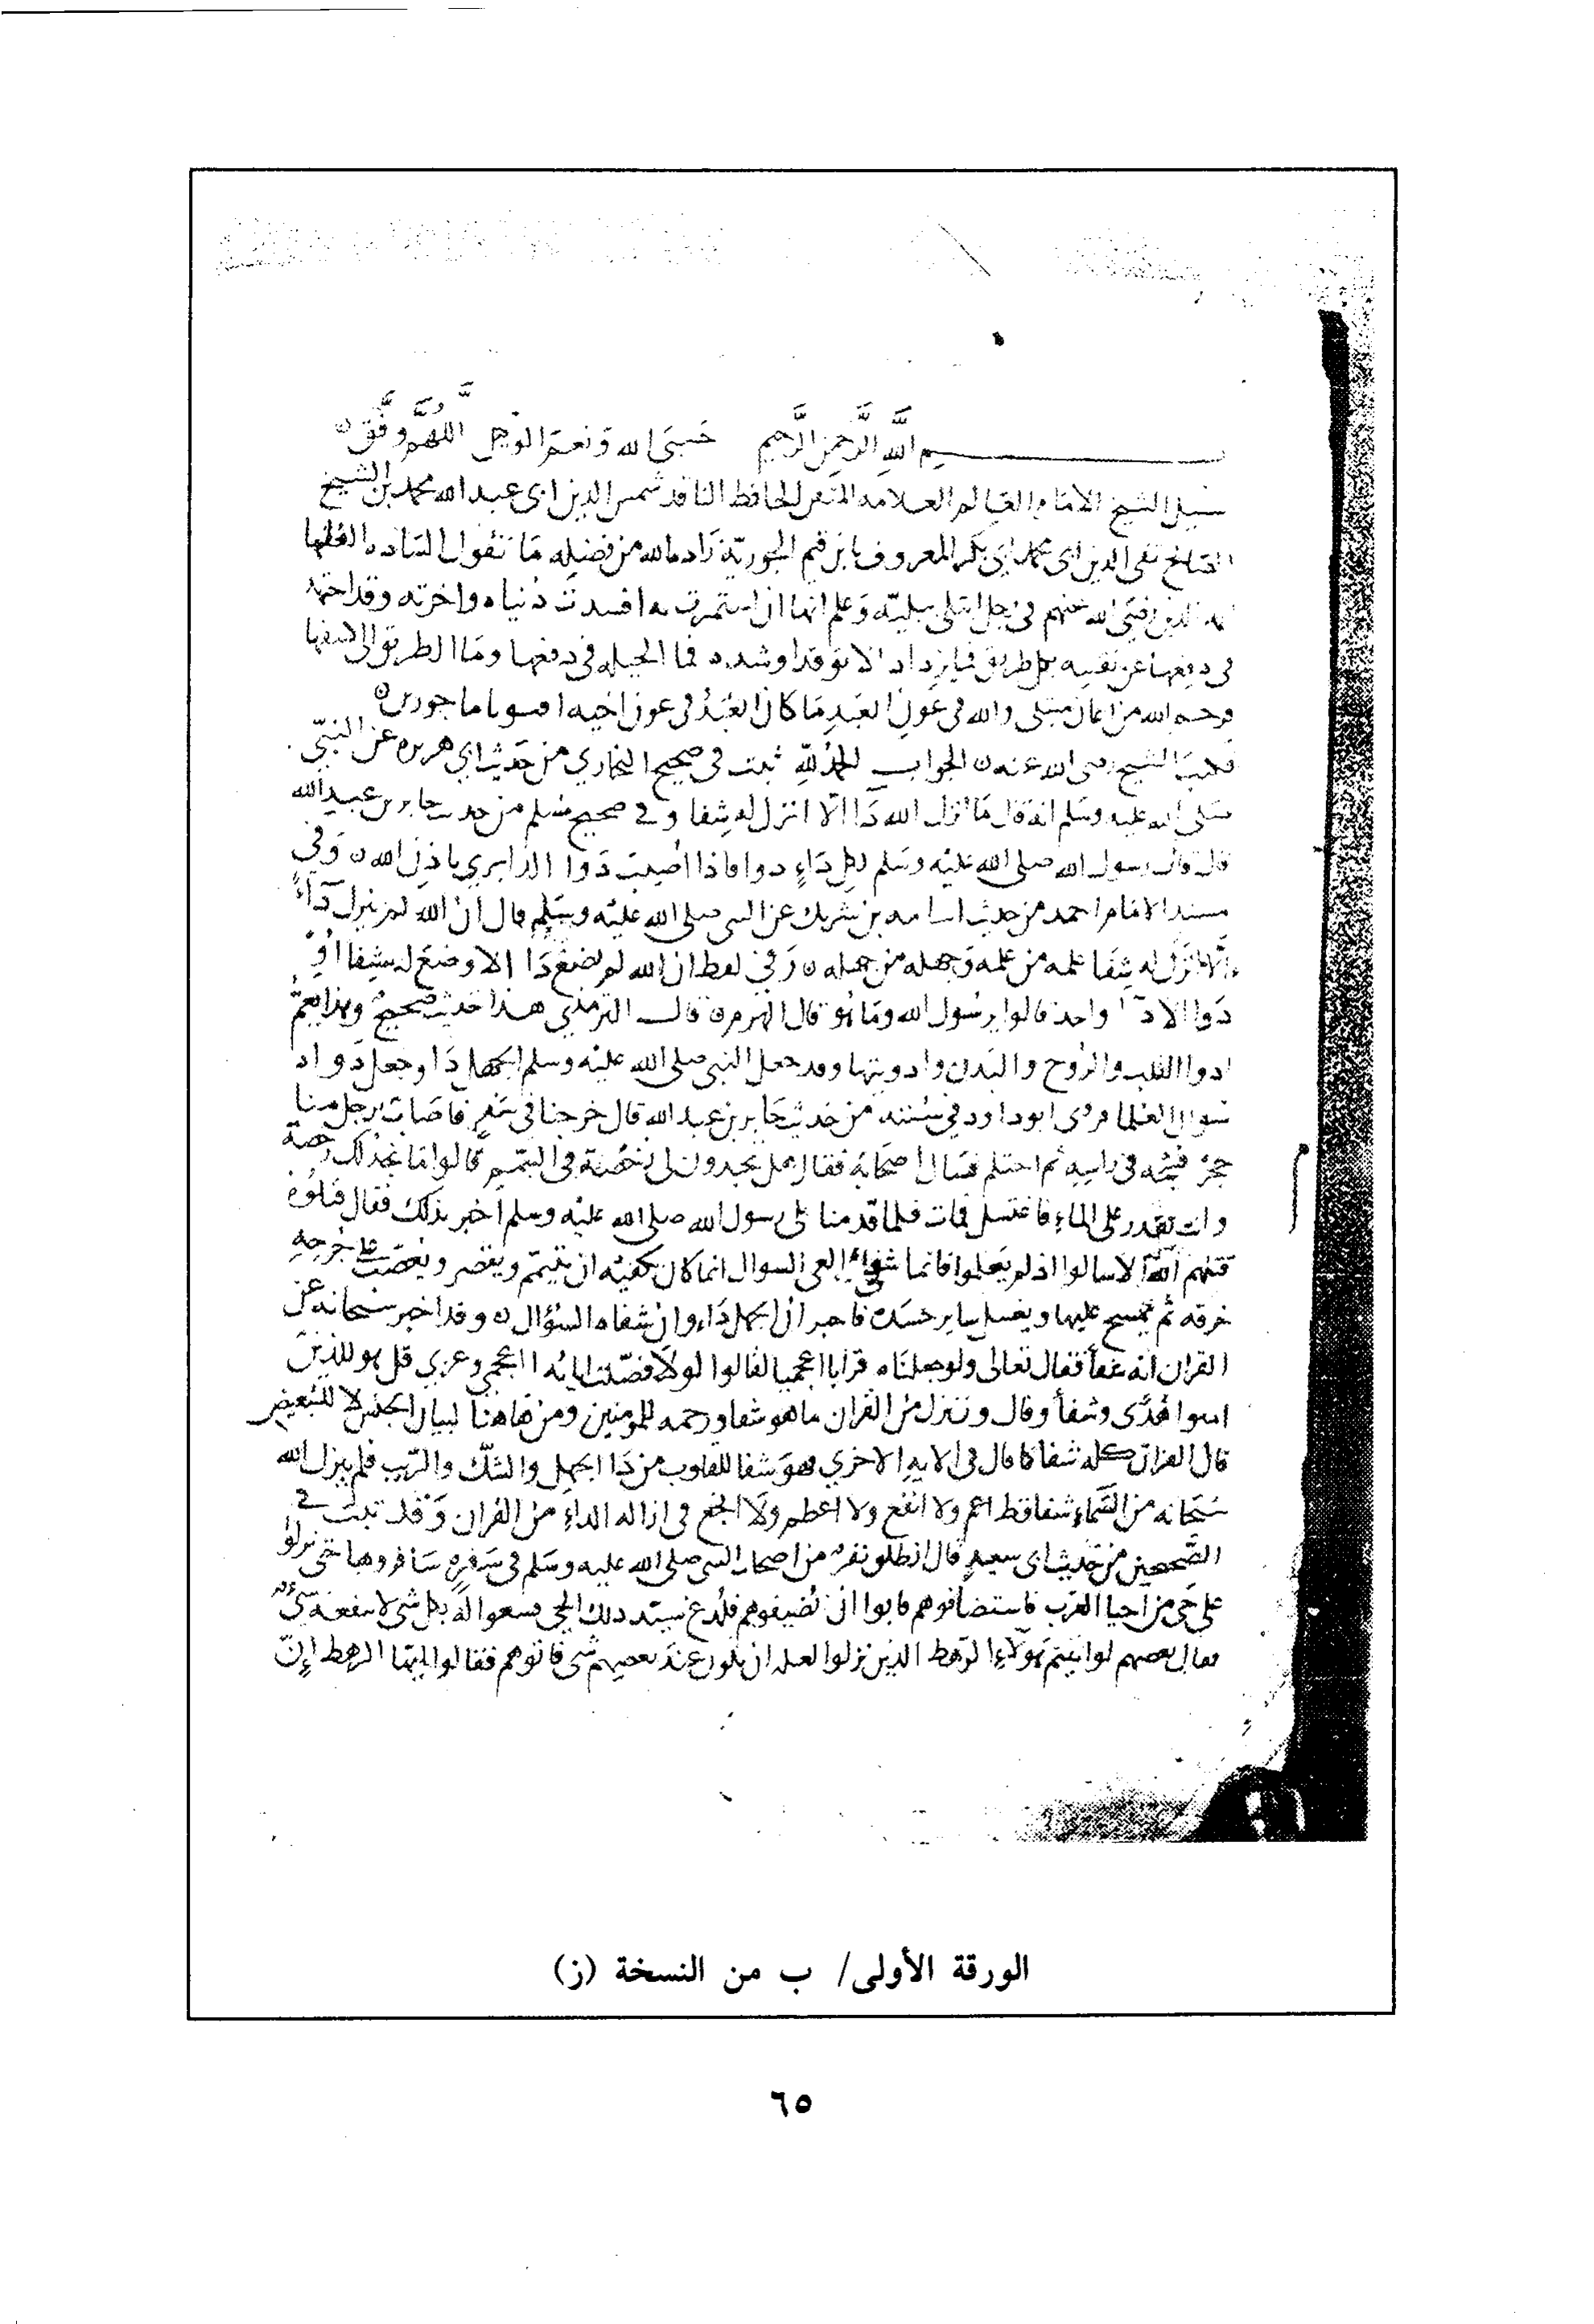 بسم الله الرحمن الرحيم حسبي الله ونعم الوكيل اللهم وفق
سئل الشيخ الامام العالم العلامه المتقن الحافظ الناقد شمس الدين ابى عبد الله محمد بن الشيخ
الصالح تقى الدين ابى محمد ابي بكر المعروف بابن قيم الجوزيّة زاده الله من فضله مَا تقول الساده العلما
ايمه الدين رضى الله عنهم فى رجل ابتلى ببليّه وَعلم انها ان استمرت به افسدت دُنياه واخرته وقد اجتهد
فى دفعها عن نفسه بكل طريق فما يزداد الا توقدا وشده فما الحيله فى دفعها ومَا الطريق الى كشفها
فرحم الله من اعان مبتلى والله فى عَون العَبد مَا كان العَبْدُ فى عون اخيه افتونا ماجورين
فكتب الشيخ رضى الله عنه الجواب الحمدُ للهِ ثبت فى صحيح البخاري من حَديث ابي هريره عن النبيّ
صَلى الله عليه وسَلم انه قال مَا انزل الله دَاا الّا انزل له شِفا وفى صحيح مسْلم من حديث جابر بن عبد الله
قال قال رسول الله صلى الله عليْه وسَلم لكل دَاءٍ دوا فاذا اُصيبَ دَوا الدا بري باذن الله وَفي
مسند الامام احمد من حديث اسامه بن شريك عن النبى صلى الله عليْه وسَلم قال ان الله لم ينزل دآءً
الّا انزل له شِفا علمه من علمه وَجهله من جهله وَفي لفظ ان الله لم يضعْ دَا الا وضعَ له شِفا اوْ
دَوا الا دآ واحد قالوا يرسُول الله ومَا هُو قال الهرم قال الترمذي هذا حَديث صحيحٌ وهذا يعمُّ
ادوا القلب والرُوح والبَدن وادويتها وقد جعل النبي صلى الله عليْه وسلم الجهل دَا وجعل دَواه
سُوال العُلما فروى ابو داود في سُننه من حَديث جَابر بن عبد الله قال خرجنا في سَفر فاصَاب رجل منا
حجرٌ فشجّه فى راسِه ثم احتلم فسَال اصحَابه فقال هل تجدون لي رخصَة فى التيمّم قالوا مَا نجد لك رخصة
وانت تقدر على الماءِ فاغتسل فمات فلما قدمنا على رسول الله صلى الله عليْه وسلم اخبر بذلك فقال قتلوه
قتلهم اللهُ الا سالوا اذ لم يَعلموا فانما شفاء العي السوال انما كان يكفيْه ان يتيمّم ويعْصر ويعْصبَ على جُرحِه
خرقه ثم يمسح عليها ويغسل ساير جسَده فاخبر ان الجهل دَاء وان شفاه السُؤال وقد اخبر سُبحانه عن
القران انه شفاً فقال تعَالى ولو جعلنَاه قرانا اعْجميا لقالوا لولا فصّلت اياته ااعْجمي وعربي قل هو للذينَ
امنوا هُدًى وشفاً وقال وننزل منَ القُران ما هو شفا ورحمه للمومنين ومن هَاهنا لبيان الجنس لا للتبعيض
قال القران كله شفا كما قال فى الايه الاخري فهوَ شفا للقلوب من دَا الجهل والشكّ والرّيب فلم ينزل الله
سُبحَانه من السّماء شفا قط اعم ولا انفع ولا اعظم وَلا انجع فى ازاله الداءِ من القران وَقد ثبت فى
الصّحيحين من حَديث ابى سعيدٍ قال انطلق نفر من اصحاب النبى صلى الله عليه وسَلم فى سَفرةٍ سَافروهَا حتى نزلوا
على حَى من احيا العَرب فاستضافوهم فابوا ان يُضيفوهم فلُدغ سيّد ذلك الحي فسعوا له بكل شى لا ينفعه شىْءٌ
فقال بعضهم لو اتيتم هَولاءِ الرّهط الذين نزلوا لعله ان يكون عندَ بعضهم شى فاتوهم فقالوا ايها الرهط إنّ
الورقة الأولى/ ب من النسخة (ز)
٦٥